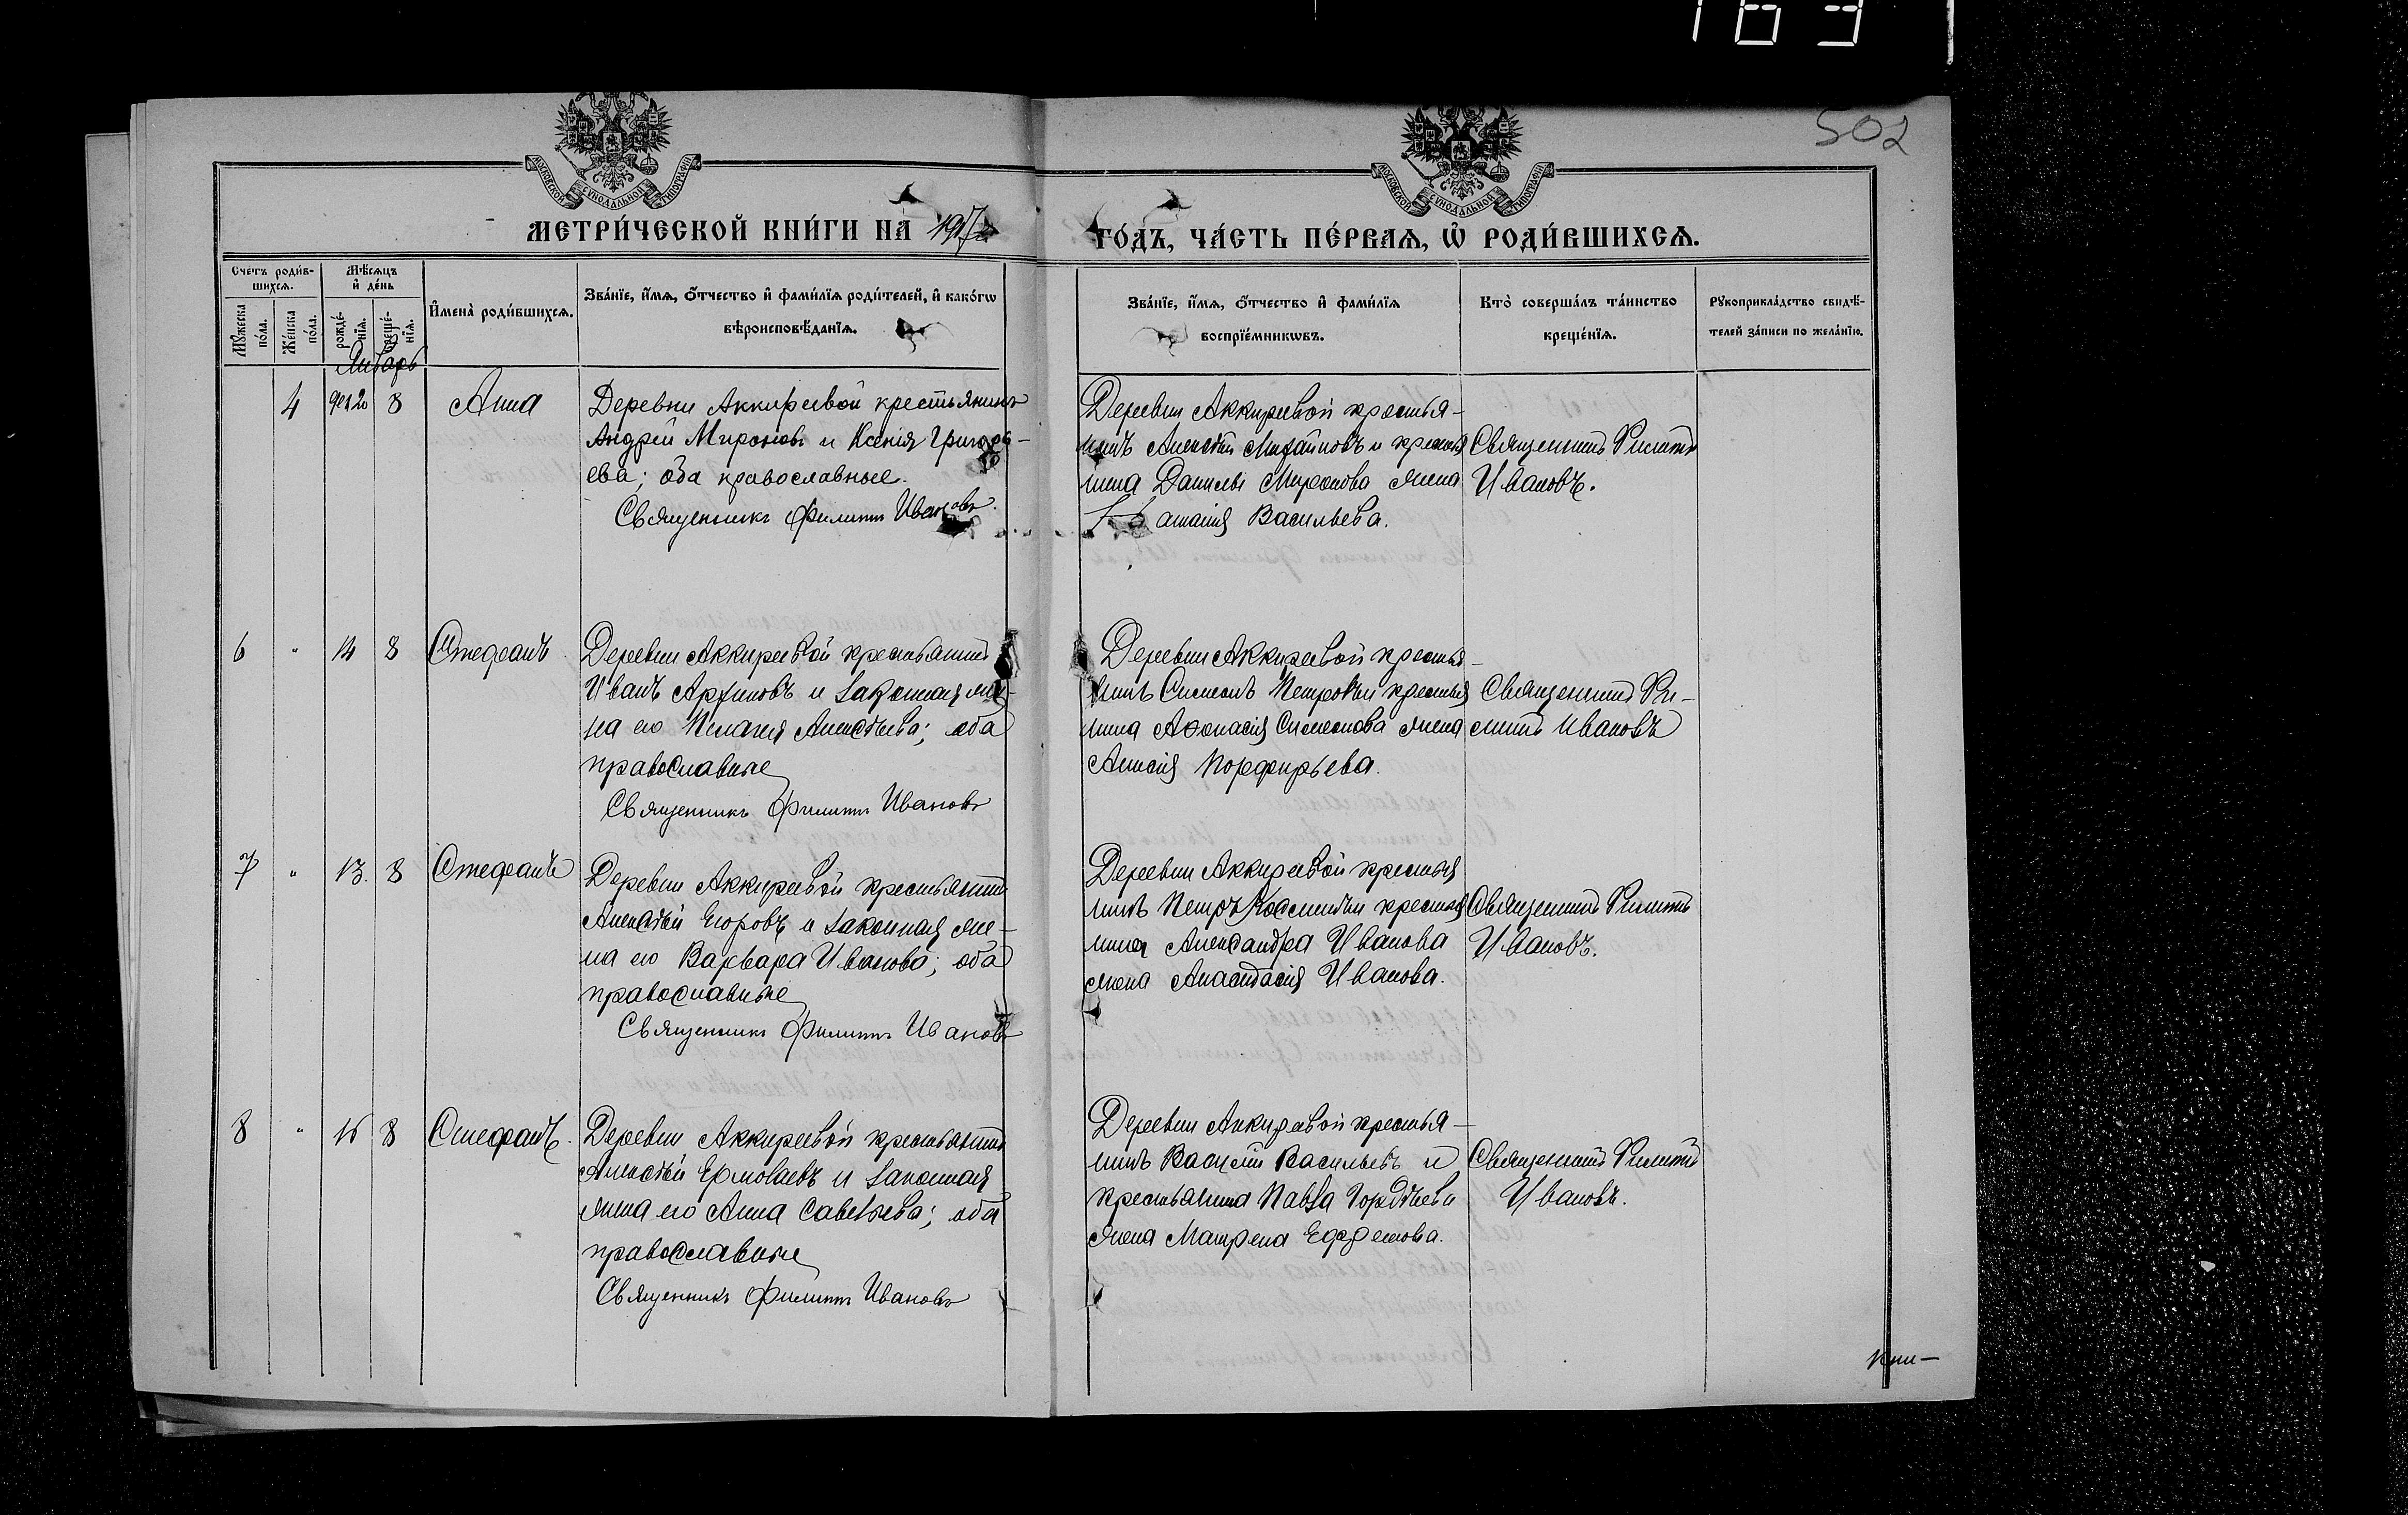 163
502
МОСКОВСКОЙ СѴНОДАЛЬНОЙ ТИПОГРАФІИ
МОСКОВСКОЙ СѴНОДАЛЬНОЙ ТИПОГРАФІИ
МЕТРИ́ЧЕСКОЙ КНИ́ГИ НА 1917
ГО́ДЪ, ЧА́СТЬ ПЕ́РВАѦ, Ѡ҆ РОДИ́ВШИХСѦ.
Сче́тъ роди́в-
шихсѧ.
Мѣ́сѧцъ
и҆ де́нь
Мꙋ́жеска
по́ла.
Же́нска
по́ла.
рожде́-
нїѧ.
креще́-
нїѧ.
И҆мена̀ роди́вшихсѧ.
Зва́нїе, и҆́мѧ, ѻ҆́тчество и҆ фами́лїѧ роди́телей, и҆ како́гѡ
вѣроисповѣ́данїѧ.
Зва́нїе, и҆́мѧ, ѻ҆́тчество и҆ фами́лїѧ
воспрїе́мникѡвъ.
Кто̀ соверша́лъ та́инство
креще́нїѧ.
Рꙋкоприкла́дство свидѣ́-
телей за́писи по жела́нїю.
Январь
4 дек 20 8 Анна
Деревни Аккиреевой крестьянинъ
Андрей Мироновъ и Ксенія Григорь-
ева; оба православные.
Священникъ Филиппъ Ивановъ
Деревни Аккиреевой крестья-
нинъ Алексѣй Михайловъ и крестья
нина Данилы Миронова жена
Васильева.
Священникъ Филиппъ
Ивановъ.
6 " 14 8 Стефанъ
Деревни Аккиреевой крестьянинъ
Иванъ Архиповъ и законная же-
на его Пелагея Алексѣева; оба
православные
Священникъ Филиппъ Ивановъ
Деревни Аккиреевой крестья-
нинъ Симеонъ Петровъ и крестья
нина Аѳонасія Симеонова жена
Анисія Порфирьева.
Священникъ Фи-
липпъ Ивановъ
7 " 13. 8 Стефанъ
Деревни Аккиреевой крестьянинъ
Алексѣй Егоровъ и законная же-
на его Варвара Иванова; оба
православные
Священникъ Филиппъ Ивановъ
Деревни Аккиреевой крестья
нинъ Петръ Косминъ и крестья
нина Александра Иванова
жена Анастасія Иванова.
Священникъ Филиппъ
Ивановъ.
8 " 8 Стефанъ.
Деревни Аккиреевой крестьянинъ
Алексѣй Ермолаевъ и законная
жена его Анна Савельева; оба
православные
Священникъ Филиппъ Ивановъ
Деревни Аккиреевой крестья-
нинъ Василій Васильевъ и
крестьянина Павла Гордѣева
жена Матрена
Священникъ Филиппъ
Ивановъ.